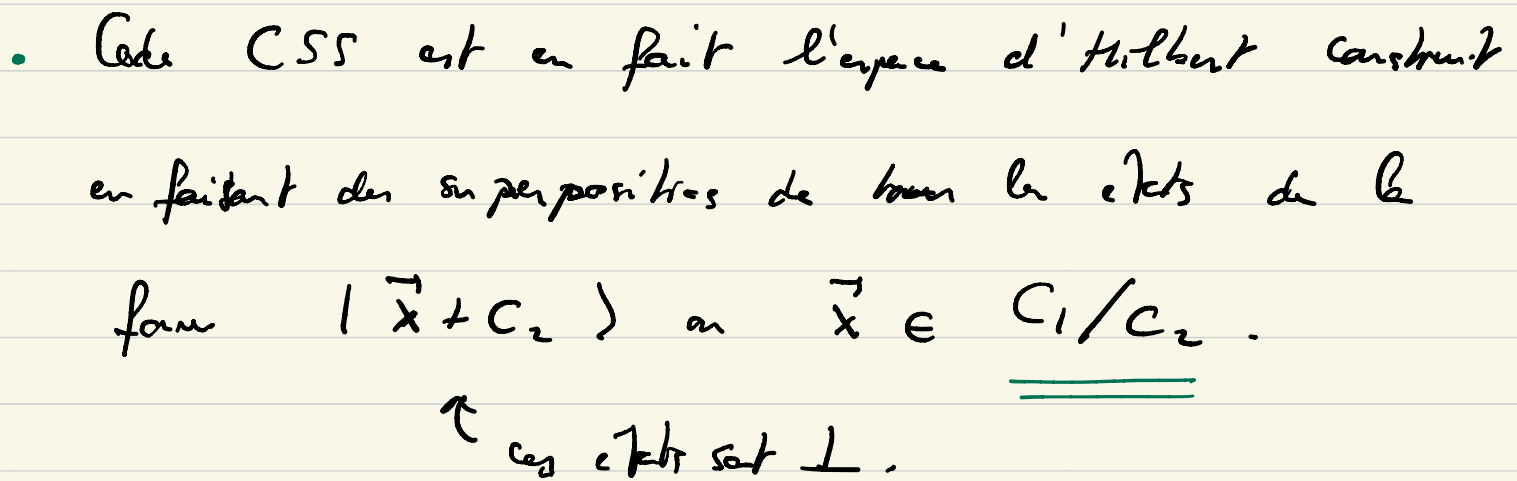 • Code CSS est en fait l'espace d'Hilbert construit
en faisant des superpositions de tous les états de la
forme | x⃗ + C₂ ⟩ où x⃗ ∈ C₁/C₂ .
↑ ces états sont ⊥ .